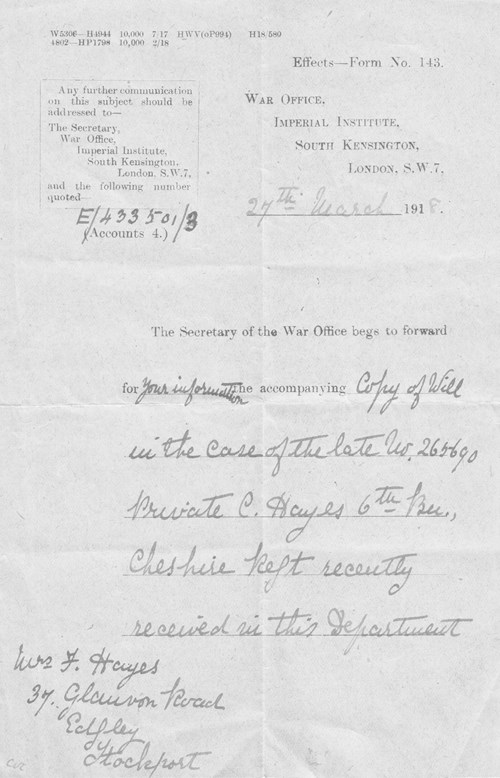 W5306—H4944 10,000 7/17 HWV(oP994) H18/580
4802—HP1798 10,000 2/18
Effects—Form No. 143.
Any further communication
on this subject should be
addressed to—
The Secretary,
War Office,
Imperial Institute,
South Kensington,
London, S.W.7,
and the following number
quoted—
E/433501/3
(Accounts 4.)
WAR OFFICE,
IMPERIAL INSTITUTE,
SOUTH KENSINGTON,
LONDON, S.W.7,
27th March 1918.
The Secretary of the War Office begs to forward
for your information the accompanying Copy of Will
in the case of the late No. 265690
Private C. Hayes 6th Bn.,
Cheshire Regt recently
received in this Department
Mrs F. Hayes
37. Glauvon Road
Edgley
Stockport